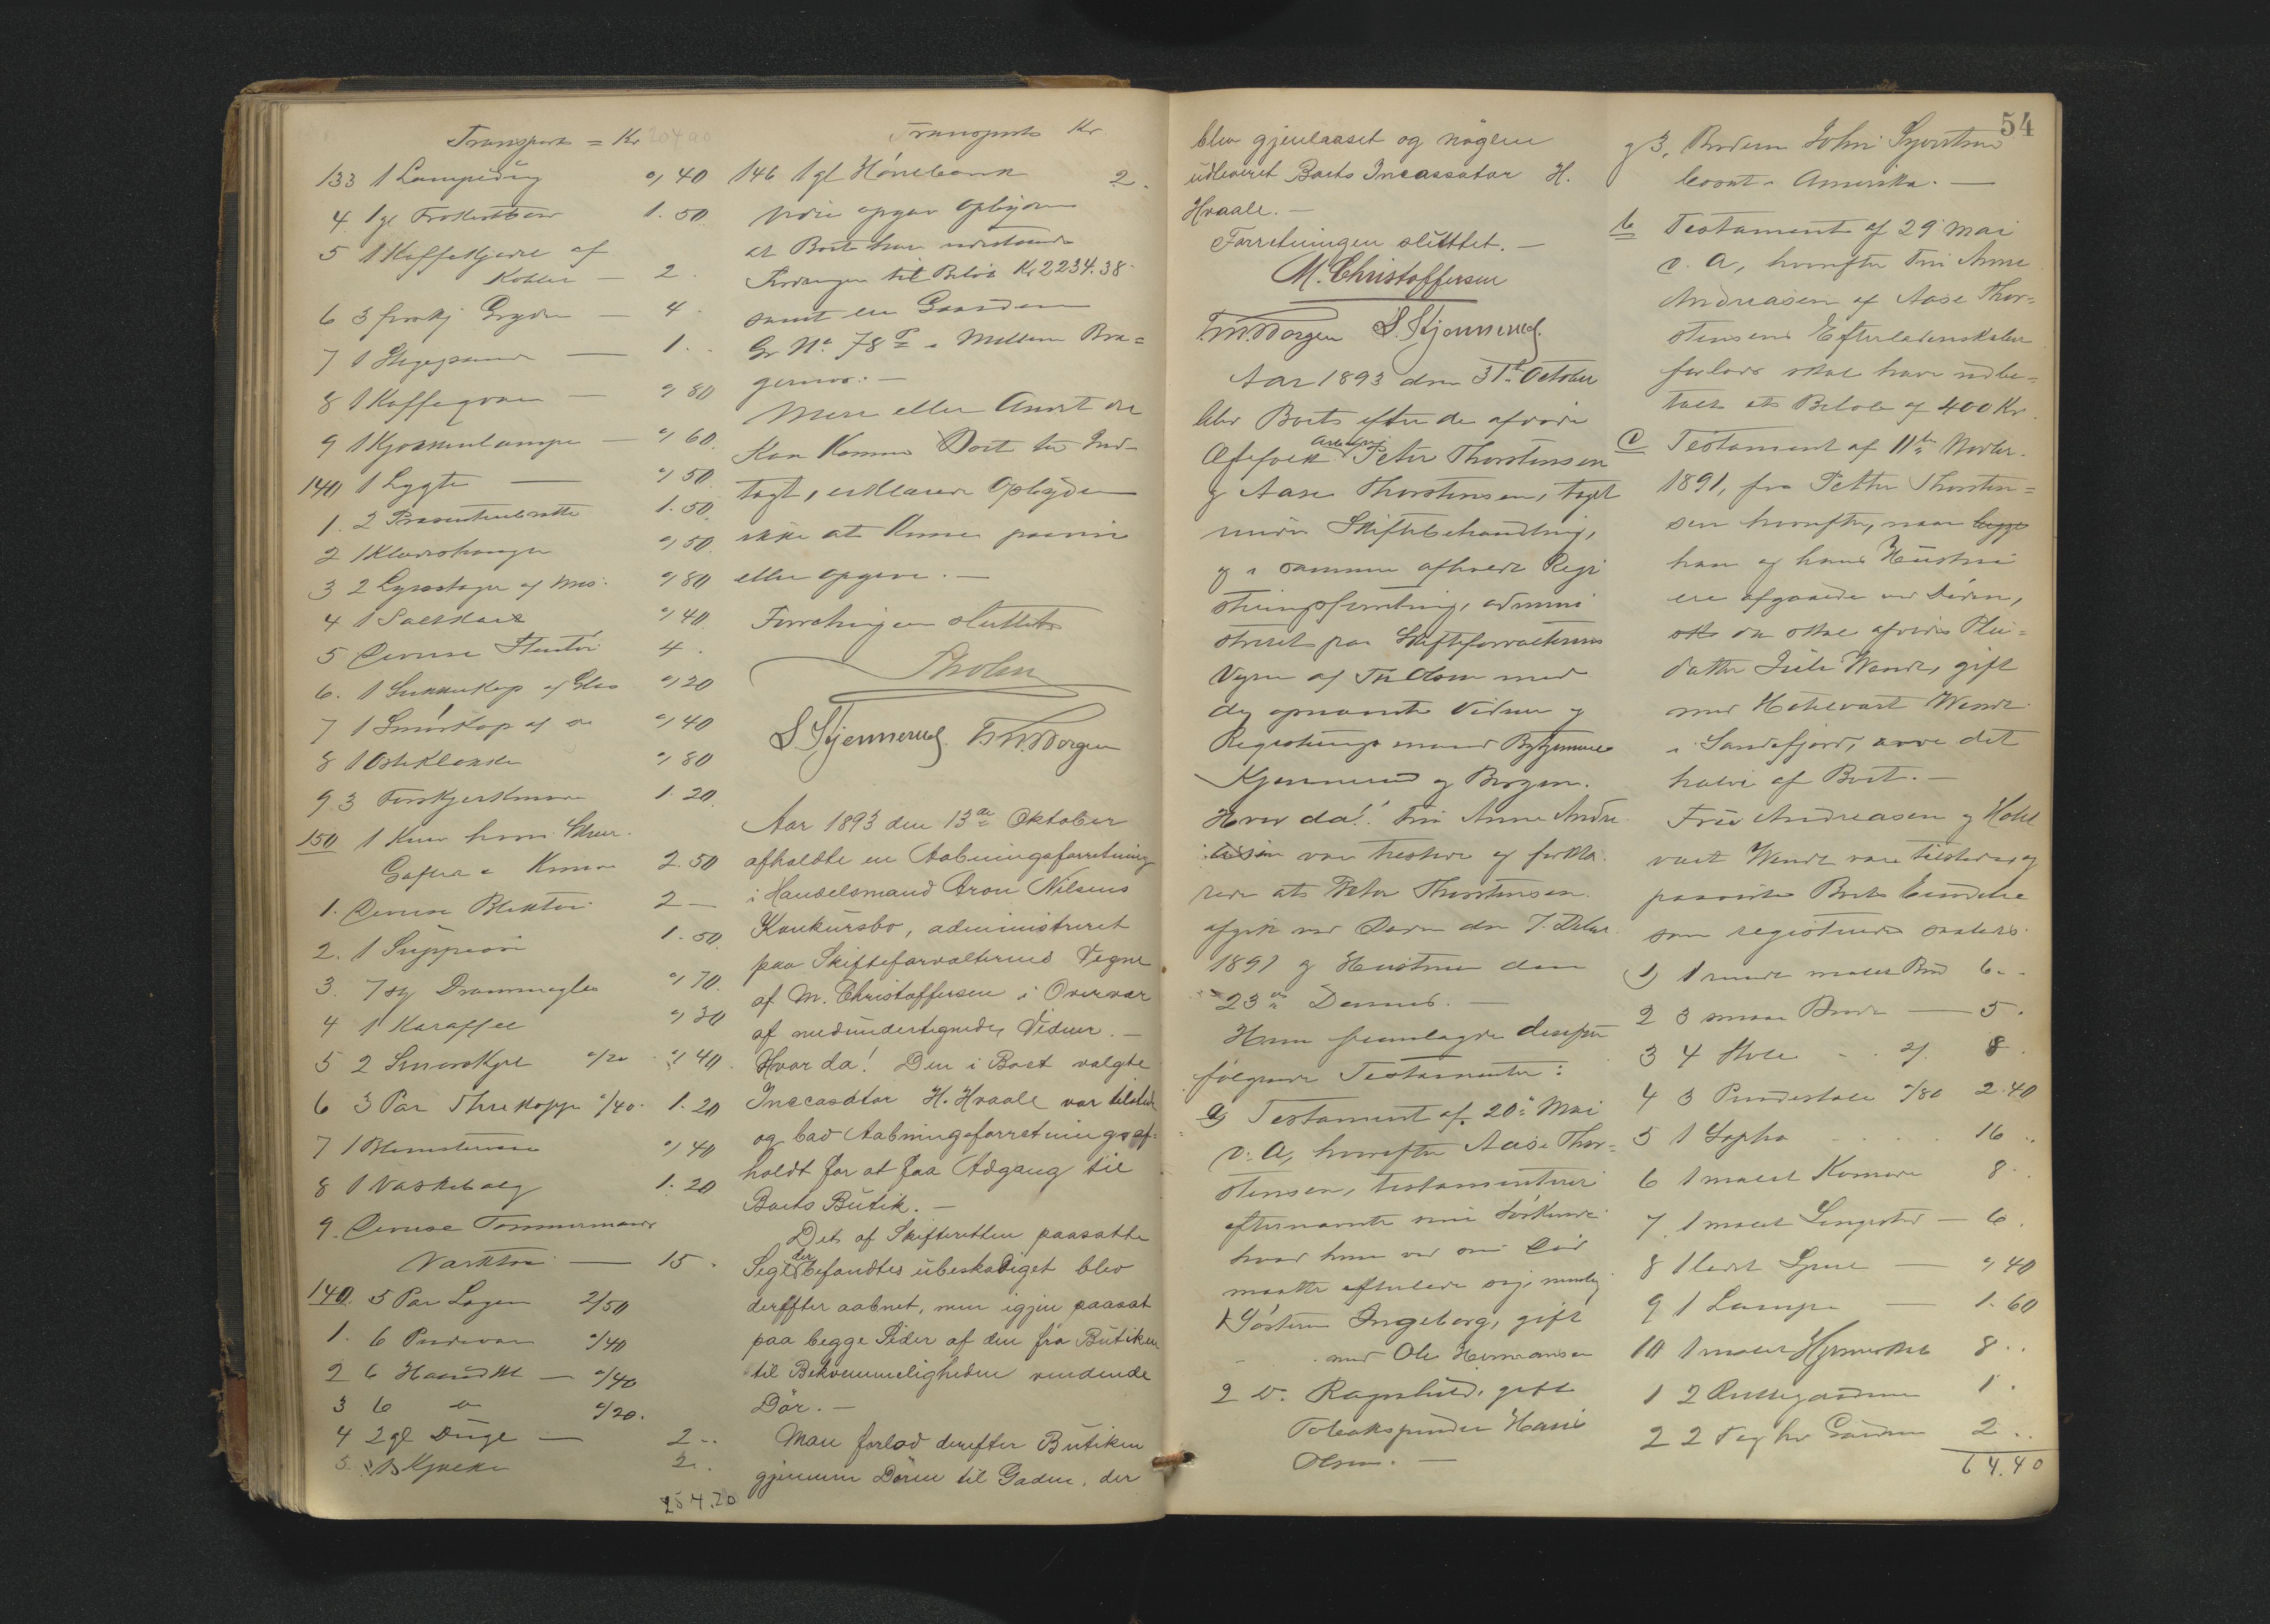 Transport = Kr 204 90
133 1 Lampeding " 40
4 1 gl 1. 50
5 1 Kaffekjedel af
Kobber — 2.
6 3 Gryder — 4.
7 1 Stegepande — 1.
8 1 Kaffeqvern — " 80
9 1 Kjøkkenlampe — " 60
140 1 Lygte — " 50
1. 2 1. 50
2 1 " 50
3 2 Lysestager af Mes. " 80
4 1 Saltkar " 40
5 Diverse Stentöi 4.
6. 1 Sukkerkop af Glas " 20
7 1 Smörkop af do " 40
8 1 Osteklokke " 80
9 3 1. 20
150 1 Kurv
Gafler & Knive 2. 50
1. Diverse Bliktöi 2 —
2. 1 1. 50
3. 7 Stk Dramмeglas " 70
4 1 Karaffel " 30
5 2 "/20 " 40
6 3 Par Thekopper "/40. 1. 20
7 1 Blomstervase " 40
8 1 Vaskebalg 1. 20
9. Diverse Tømmermands
Værktøi — 15.
140. 5 Par Lagen 2/50
1. 6 Pudevar "/40
2 6 Haandkl — "/40
3 6 do "/20.
4 2 gl Duge — 2 ..
5 2.
254.20
Transport Kr
146 1 gl Hönebænk 2.
Videre opgav Opbyderen
at Boet har udestaaende
Fordringer til Beløb Kr 2234.38
samt en Gaard
Gr No 78 Mellem Bra=
gernes. —
Mere eller Andet der
kan komme Boet til Ind-
tægt, erklærede Opbyderen
ikke at kunne paavise
eller opgive. —
Forretningen sluttet
Tholm
S. Kjennerud. Borgen
Aar 1893 den 13de Oktober
afholdte en Aabningsforretning
i Handelsmand Aron Nilsens
Konkursbo, administreret
paa Skifteforvalterens Vegne
af M. Christoffersen i Overvær
af medundertegnede Vidner. —
Hvor da! Den i Boet valgte
Incasator H. Hvaale var tilstede
og bad Aabningsforretning af=
holdt for at faa Adgang til
Boets Butik. —
Det af Skifteretten paasatte
Segl der befandtes ubeskadiget blev
derefter aabnet, men igjen paasat
paa begge Sider af den fra Butiken
til Bekvemmeligheden vendende
Dör. —
Man forlod derefter Butiken
gjennem Dören til Gaden, der
54
blev gjenlaaset og nøglen
udleveret Boets Incassator H.
Hvaale. —
Forretningen sluttet. —
M. Christoffersen
Borgen S. Kjennerud
Aar 1893 den 31te October
blev Boet efter de afdøde
Ægtefolk Arbeider Peter Thorstensen
og Aase Thorstensen, taget
under Skiftebehandling,
og i samme afholdt Regi
streringsforretning, admini
streret paa Skifteforvalterens
Vegne af Olsen med
de opnævnte Vidner og
Registreringsmænd
Kjennerud og Borgen.
Hvor da! Fru Anne Andre
asen var tilstede og forkla
rede at Peter Thorstensen
afgik ved Døden den 7. Debr.
1891 og Hustruen den
23de Dennes. —
Hun fremlagde dernæst
følgende Testamenter:
a) Testament af 20de Mai
d. A, hvorefter Aase Thor=
stensen, testamenterer
efternævnte sine Søskende
hvad hun ved sin Død
maatte efterlade sig, nemlig
1 Søsteren Ingeborg, gift
med Ole Hermansen
2 do. Ragnhild, gift
Tobakspinder Hans
Olsen. —
og 3, Broderen John Syvertsen
bosat i Amerika. —
b Testament af 29 Mai
d. A, hvorefter Fru Anne
Andreasen af Aase Thor=
stensens Efterladenskaber
forlods skal have udbe=
talt et Beløb af 400 Kr.
c Testament af 11te Novbr.
1891, fra Petter Thorsten=
sen hvorefter, naar begge
han og hans Hustru
ere afgaaede ved Døden,
skal afdødes Plei=
datter Julie Wendt, gift
med Hotelvært Wendt
i Sandefjord, arve det
halve af Boet. —
Fru Andreasen og Hotel
vært Wendt vare tilstede og
paaviste Boets Eiendele
som registreredes saaledes
1) 1 rundt malet Bord 6 ..
2 3 smaa Borde — 5.
3 4 Stole 2/. 8.
4 3 Pindestole "/80 2. 40
5 1 Sopha 16 ..
6 1 malet Komode 8.
7. 1 malet Sengested — 6.
8 1 " 40
9 1 Lampe — 1. 60
10 1 malet Hjørneskab 8 ..
1 2 Rullegardiner 1.
2 2 Fag hv Gardiner 2 ..
64.40